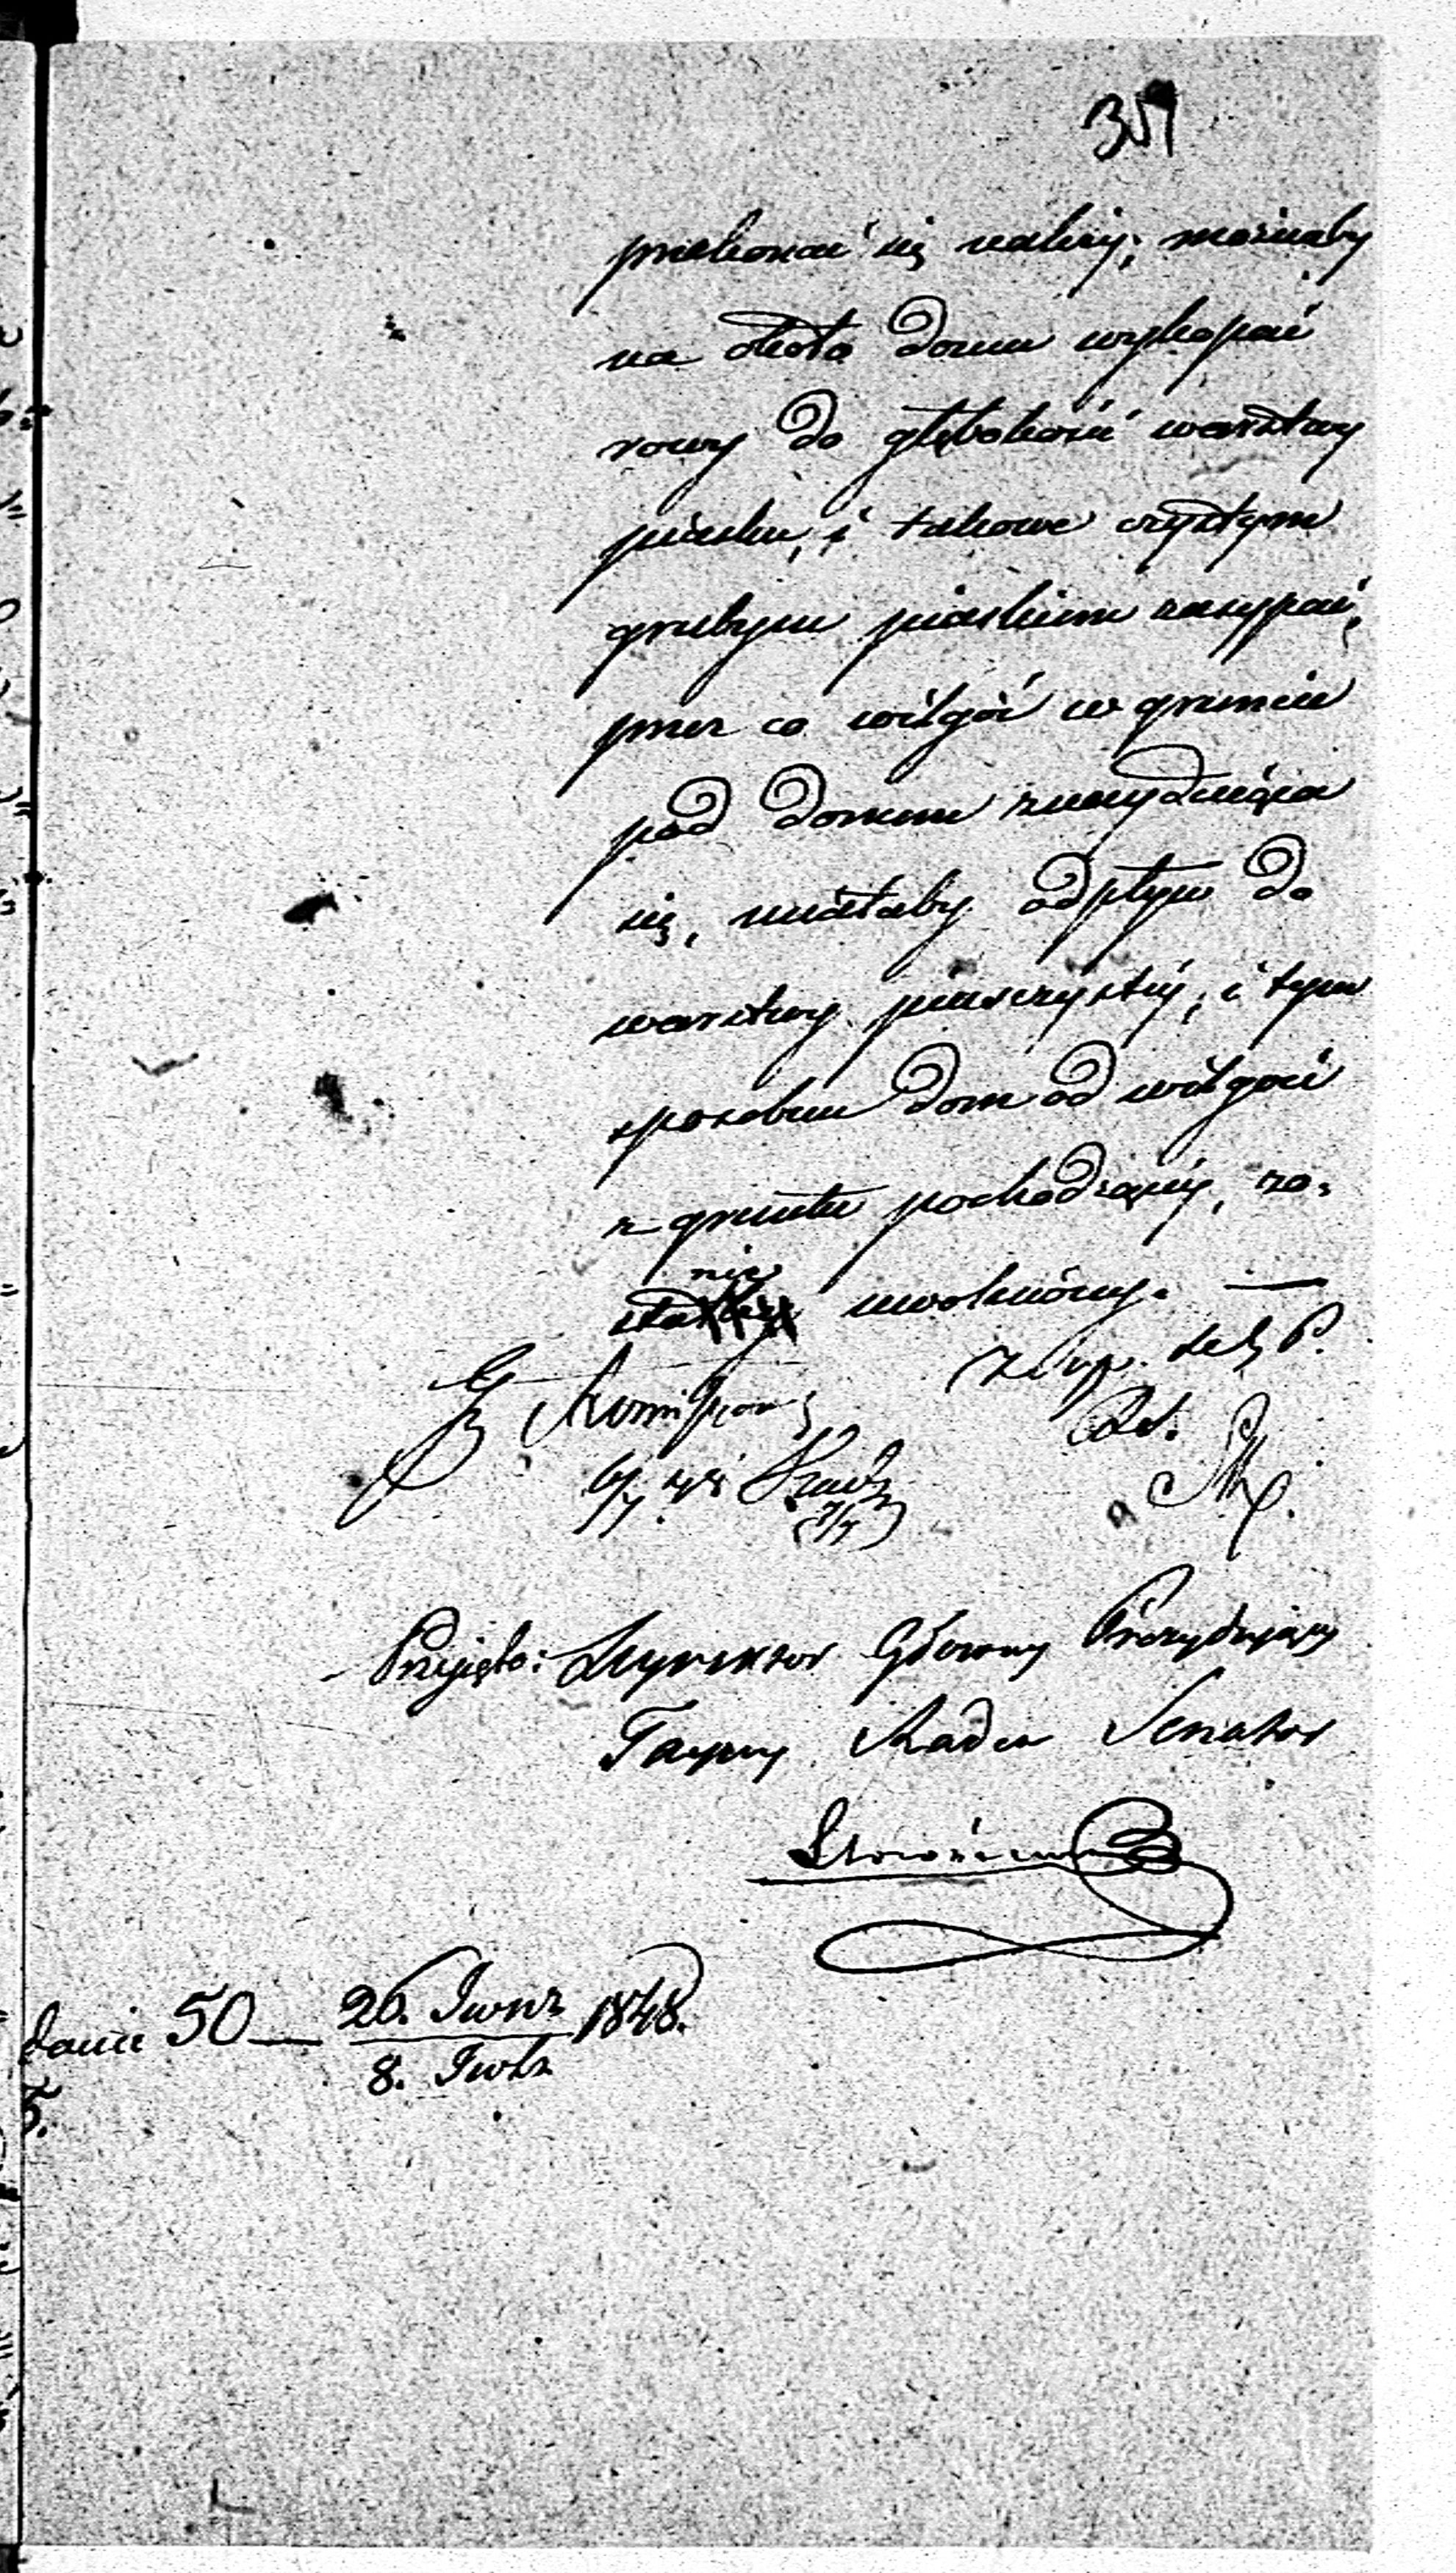 351
przekonać się należy; możnaby
na około domu wykopać
rowy do głębokości warstwy
piasku, i takowe czystym
grubym piaskiem zasypać,
przez co wilgoć w gruncie
pod domem znayduiąca
się, miałaby odpływ do
warstwy piasczystéy, i tym
sposobem dom od wilgoci
z gruntu pochodzącéy, zo-
nie
stał uwolniony. —
Przyjęto: Dyrektor Główny Prezydujący
Tayny Radca Senator
danie 50 — 26. Iuni 1848.
8. Iuli
5.